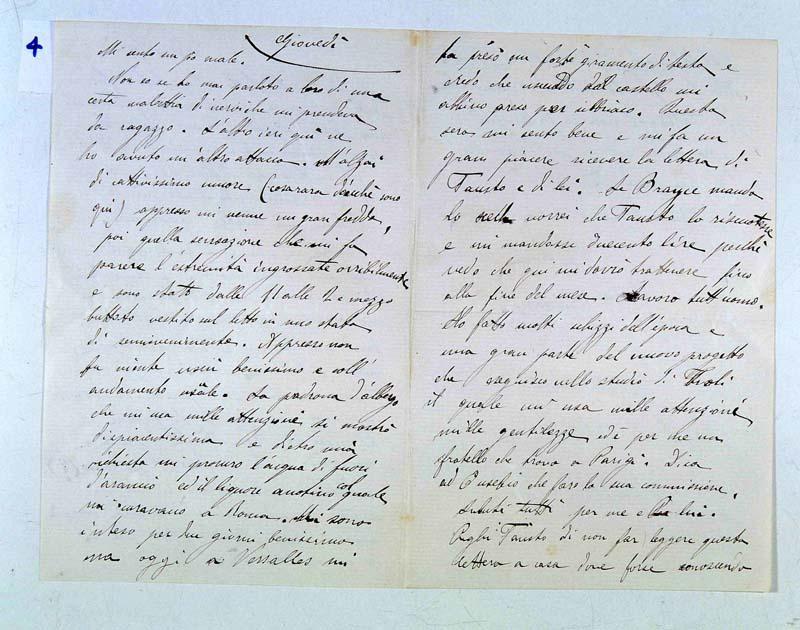 4
Giovedì
Mi sento un po male.
Non so se ho mai parlato a loro di una
certa malattia di nervi che mi prendeva
da ragazzo. L'altro ieri qui ne
ho avuto un altro attacco. M'alzai
di cattivissimo umore (cosa rara dacchè sono
qui) appresso mi venne un gran freddo,
poi quella sensazione che mi fa
parere l'estremità ingrossate orribilmente
e sono stato dalle 11 alle 2 e mezzo
buttato vestito sul letto in uno stato
di semisvenimento. Appresso non
fu niente uscii benissimo e coll'
andamento usuale. La padrona d'albergo
che mi usa mille attenzioni si mostrò
dispiacentissima e dietro mia
richiesta mi procurò l'acqua di fiori
d'arancio ed il liquore anodino col quale
mi curavano a Roma. Mi sono
inteso per due giorni benissimo
ma oggi a Versalles mi
ha preso un forte giramento di testa e
credo che uscendo dal castello mi
abbino preso per ubbriaco. Questa
sera mi sento bene e mi fa un
gran piacere ricevere la lettera di
Fausto e di lei. Se manda
lo vorrei che Fausto lo riscuotesse
e mi mandasse duecento lire perchè
vedo che qui mi dovrò trattenere fino
alla fine del mese. Lavoro tutt'uomo.
Ho fatto molti schizzi dell'epoca e
una gran parte del nuovo progetto
che eseguisco nello studio di
il quale mi usa mille attenzioni
mille gentilezze ed è per me un
fratello che trovo a Parigi. Dica
ad Eusepio che farò la sua commissione.
Saluti tutti per me e lui.
Preghi Fausto di non far leggere questa
lettera a casa dove forse conoscendo